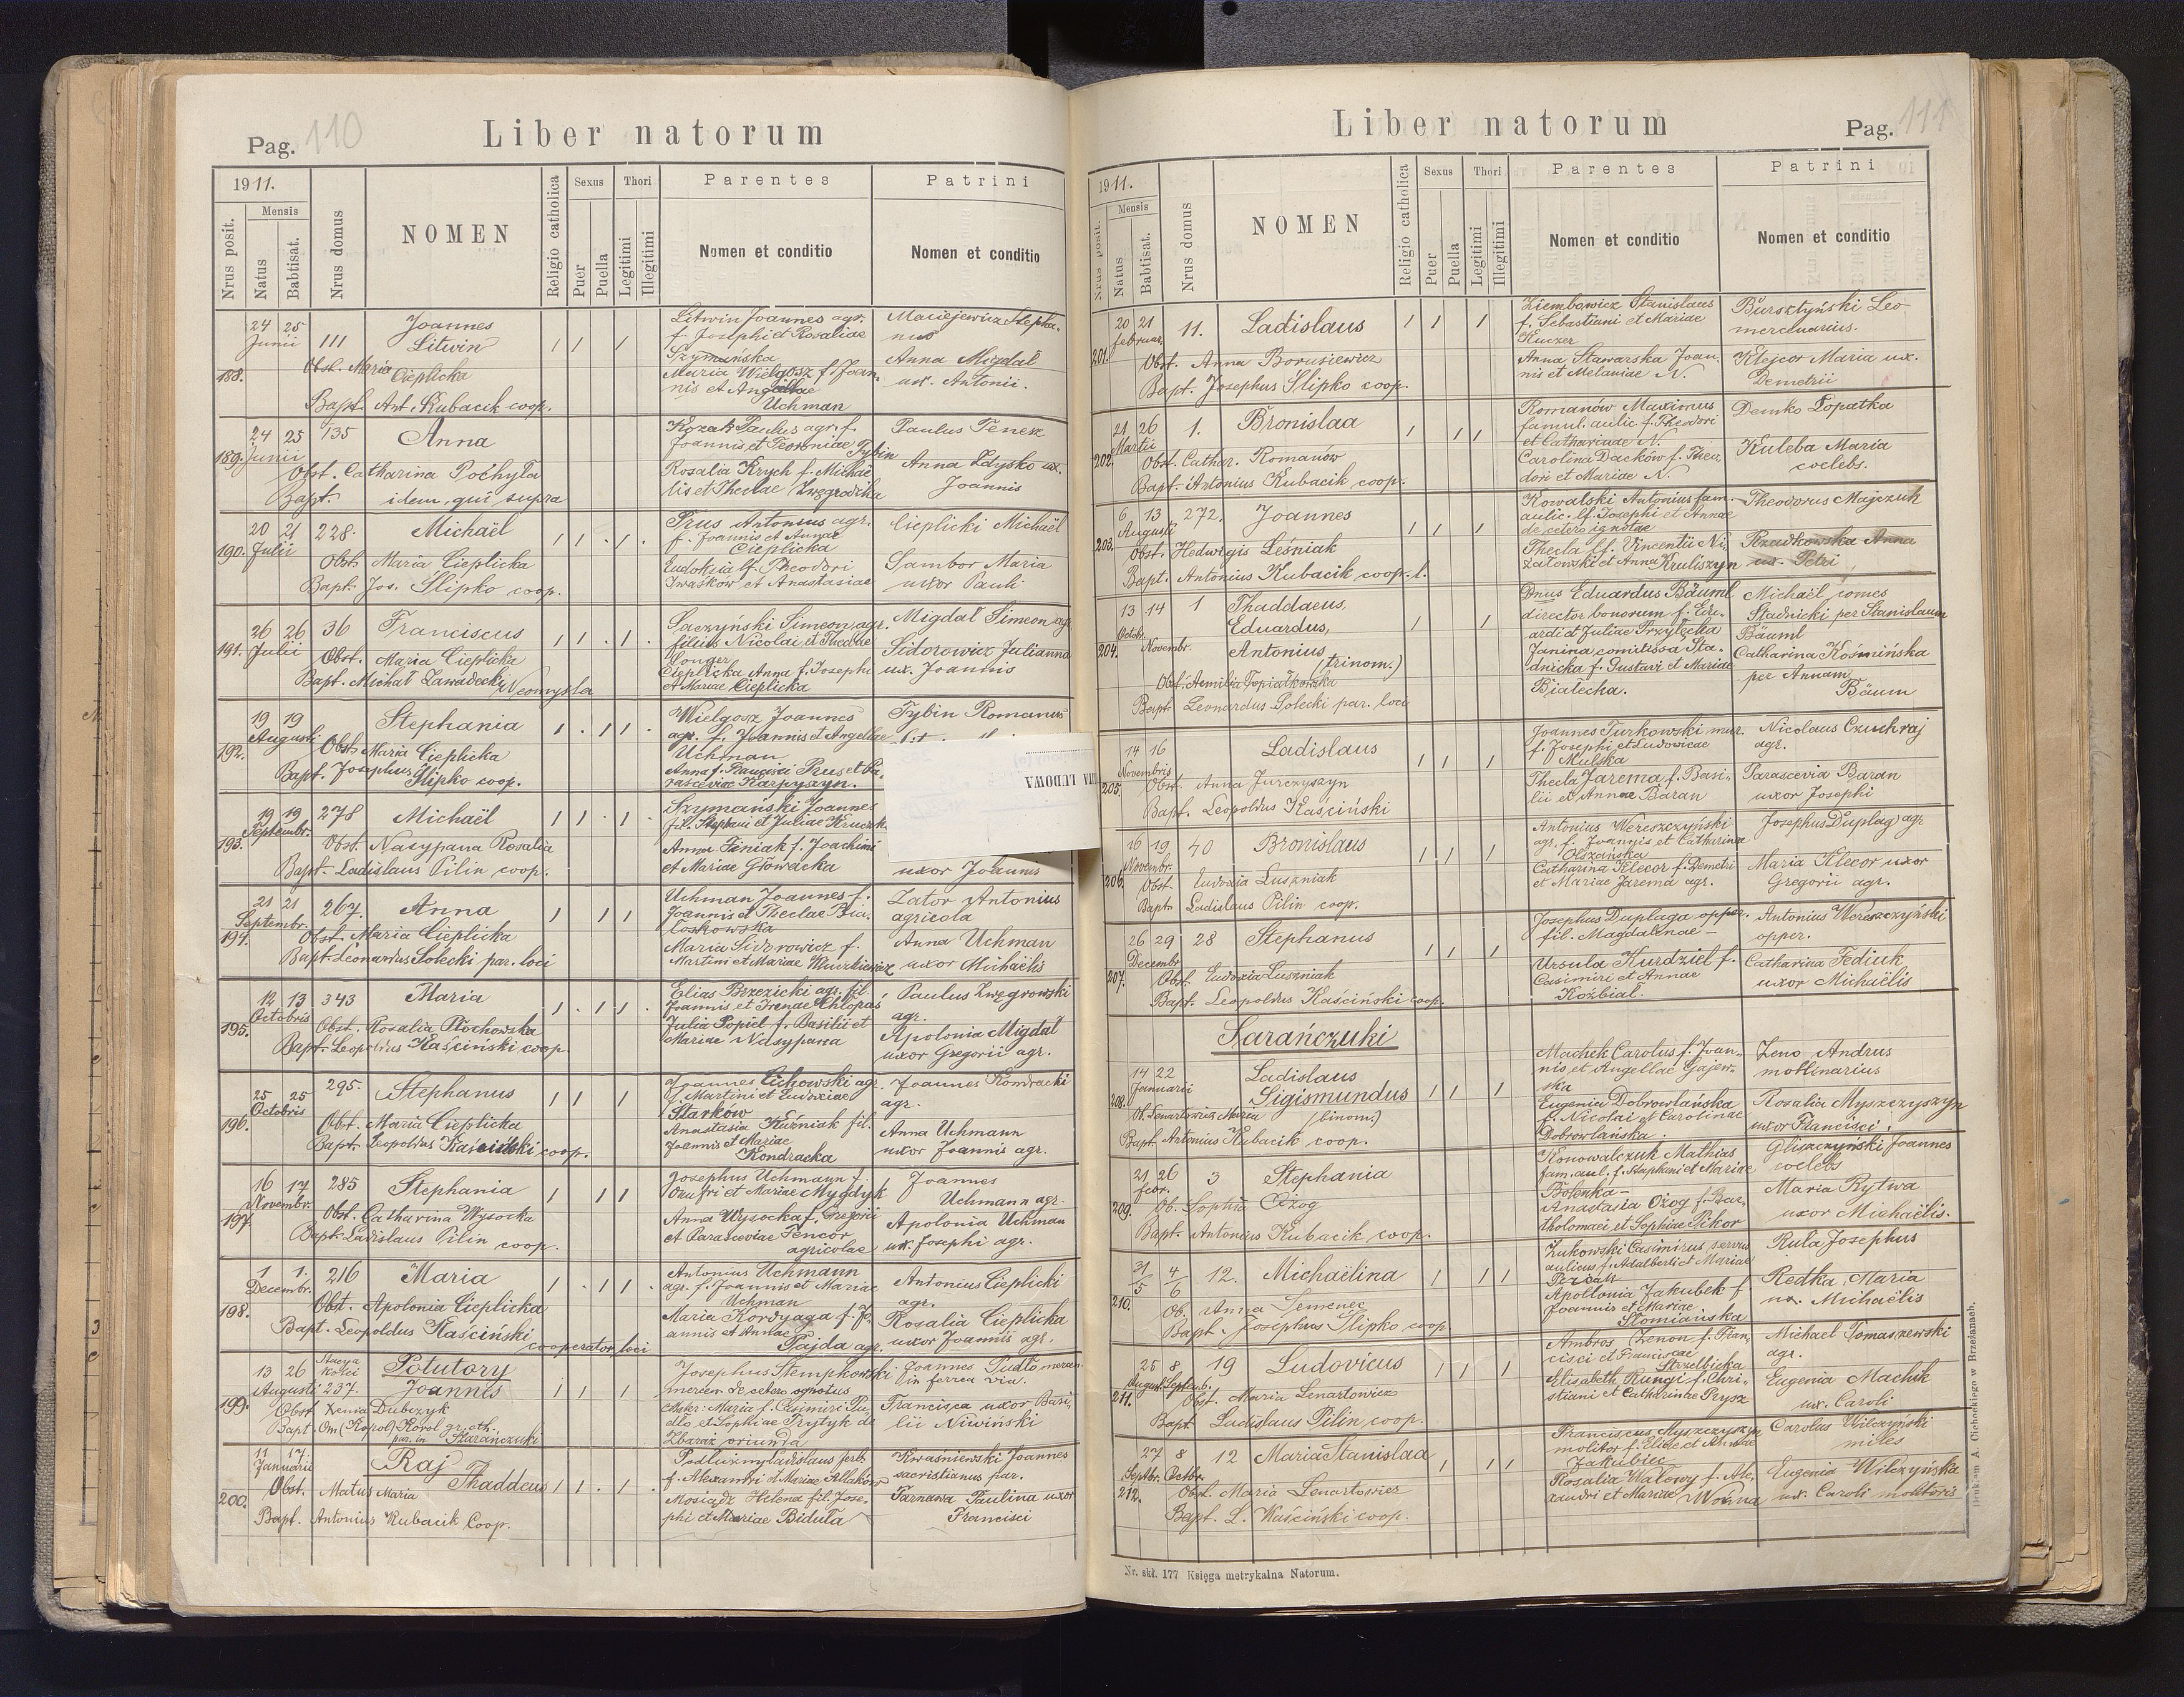 Pag. 110
Liber natorum
1911.
Nrus posit.
Mensis
Natus
Babtisat.
Nrus domus
NOMEN
Religio catholica
Sexus
Puer
Puella
Thori
Legitimi
Illegitimi
Parentes
Nomen et conditio
Patrini
Nomen et conditio
188.
24 25
Junii
111
Joannes
Litwin
Obst. Maria
Cieplicka
Bapt. Ant. Kubacik coop.
Litwin Joannes agr.
f. Josephi et Rosaliae
Szymańska
Maria Wielgosz f. Joan-
nis et Angellae
Uchman
Maciejewicz Stepha-
nus
Anna Migdał
ux. Antonii.
189.
24 25
Junii
135
Anna
Obst. Catharina Pochyła
Bapt. idem, qui supra
Kozak Paulus agr. f.
Joannis et Feroniae Tybin
Rosalia Krych f. Michaë-
lis et Theclae Zwęgrodzka
Paulus Tenerz
Anna Łdysko ux.
Joannis
190.
20 21
Julii
228.
Michaël
Obst. Maria Cieplicka
Bapt. Jos. Slipko coop.
Prus Antonius agr.
f. Joannis et Annae
Cieplicka
Eudoksia lf. Theodori
Iwaśków et Anastasiae
Cieplicki Michaël
Sambor Maria
uxor Pauli
191.
26 26
Julii
36
Franciscus
Obst. Maria Cieplicka
Bapt. Michał Zawadecki Neomysta
Saczyński Simeon agr.
filius Nicolai et Theclae
Conger
Cieplicka Anna f. Josephi
et Mariae Cieplicka
Migdał Simeon agr.
Sidorowicz Julianna
ux. Joannis
192.
19 19
Augusti
Stephania
Obst. Maria Cieplicka
Bapt. Josephus
Slipko coop.
Wielgosz Joannes
agr. f. Joannis et Angellae
Uchman
Anna f. Francisci Prus et Pa-
rasceviae Karpyszyn.
Tybin Romanus
193.
19 19
Septembr.
278
Michaël
Obst. Nasypana Rosalia
Bapt. Ladislaus Pilin coop.
Szymański Joannes
fil. Stephani et Juliae Kruczek
Anna Siniak f. Joachimi
et Mariae Głowacka
uxor Joannis
194.
21 21
Septembr.
267.
Anna
Obst. Maria Cieplicka
Bapt. Leonardus Sołecki par. loci
Uchman Joannes f.
Joannis et Theclae Bia-
łoskowska
Maria Sidorowicz f.
Martini et Mariae Kluczkiewicz
Zator Antonius
agricola
Anna Uchman
uxor Michaëlis
195.
12 13
Octobris
343
Maria
Obst. Rosalia Płochowska
Bapt. Leopoldus Kaściński coop.
Elias Brzezicki agr. fil.
Joannis et Irenae Chłopaś
Julia Popiel f. Basilii et
Mariae Nasypana
Paulus Zwęgrowski
agr.
Apolonia Migdał
uxor Gregorii agr.
196.
25 25
Octobris
295.
Stephanus
Obst. Maria Cieplicka
Bapt. Leopoldus Kaściński coop.
Joannes Cichowski agr.
f. Martini et Eudoxiae
Starków
Anastasia Kuźniak fil.
Joannis et Mariae
Kondracka
Joannes Kondracki
agr.
Anna Uchmann
uxor Joannis agr.
197.
16 17
Novembr.
285
Stephania
Obst. Catharina Wysocka
Bapt. Ladislaus Pilin coop.
Josephus Uchmann f.
Onufri et Mariae Mygdyk
Anna Wysocka f. Gregorii
et Parasceviae Fencor
agricolae
Joannes
Uchmann agr.
Apolonia Uchman
ux. Josephi agr.
198.
1 1.
Decembr.
216
Maria
Obst. Apolonia Cieplicka
Bapt. Leopoldus Kaściński
cooperator loci
Antonius Uchmann
agr. f. Joannis et Mariae
Uchman
Maria Kordyaga f. Jo-
annis et Annae
Pajda agr.
Antonius Cieplicki
agr.
Rosalia Cieplicka
uxor Joannis agr.
199.
13 26
Augusti
Stacya
Kolei
237.
Potutory
Joannes
Obst. Xenia Dubczyk
Bapt. Om. (Kopol) Korol gr. cth.
par. in Szarańczuki
Josephus Stempkowski
mercen. de cetero ognotus
Mater: Maria f. Casimiri Pu-
dło et Sophiae Prytyk de
Zbaraż oriunda
Joannes Pudło mercen.
in ferrea via.
Francisca uxor Basi-
lii Niwiński
200.
11 17.
Januarii
Raj
Thaddeus
Obst. Matus Maria
Bapt. Antonius Kubacik Coop.
Podłużny Ladislaus
f. Alexandri et Mariae
Mosiądz Helena fil. Jose-
phi et Mariae Biduła
Kwaśniewski Joannes
sacristianus par.
Tarnawa Paulina uxor
Francisci
Liber natorum
Pag. 111
1911.
Nrus posit.
Mensis
Natus
Babtisat.
Nrus domus
NOMEN
Religio catholica
Sexus
Puer
Puella
Thori
Legitimi
Illegitimi
Parentes
Nomen et conditio
Patrini
Nomen et conditio
201.
20 21
februar.
11.
Ladislaus
Obst. Anna Borusiewicz
Bapt. Josephus Slipko coop.
Ziembowicz Stanislaus
f. Sebastiani et Mariae
Kuczer
Anna Stawarska Joan-
nis et Melaniae N.
Bursztyński Leo
mercenarius.
Klejcor Maria ux.
Demetrii
202.
21 26
Martii
1.
Bronislaa
Obst. Cathar. Romanów
Bapt. Antonius Kubacik coop.
Romanów Maximus
famul. aulic. f. Theodori
et Catharinae N.
Carolina Dacków f. Theo-
dori et Mariae N.
Demko Łopatka
Kuleba Maria
coelebs.
203.
6 13
Augusti
272.
Joannes
Obst. Hedwigis Leśniak
Bapt. Antonius Kubacik coop. l.
Kowalski Antonius fam.
aulic. lf. Josephi et Annae
de cetero ignotae
Thecla lf. Vincentii Ni-
zatowski et Anna Kruliszyn
Theodorus Majczuk
Rzadkowska Anna
ux. Petri
204.
13 14
Octobr. Novembr.
1
Thaddaeus,
Eduardus,
Antonius
(trinom.)
Obst. Aemilia Topiatkowska
Bapt. Leonardus Sołecki par. loci
Dnus Eduardus Bäuml
director bonorum f. Edu-
ardi et Juliae Przyłęcka
Janina comitissa Sta-
dnicka f. Gustavi et Mariae
Białecha.
Michaël comes
Stadnicki per Stanislaum
Bäuml
Catharina Kośmińska
per Annam
Bäum
205.
14 16
Novembris
Ladislaus
Obst. Anna Jurczyszyn
Bapt. Leopoldus Kaściński
Joannes Turkowski mur.
f. Josephi et Ludovicae
Mulska
Thecla Jarema f. Basi-
lii et Annae Baran
Nicolaus Czuchraj
agr.
Parascevia Baran
uxor Josephi
206.
16 19
Novembr.
40
Bronislaus
Obst. Eudoxia Luszniak
Bapt. Ladislaus Pilin coop.
Antonius Wereszczyński
agr. f. Joannis et Catharina
Olszańska
Catharina Klecor f. Demetri
et Mariae Jarema agr.
Josephus Duplaga agr
Maria Klecor uxor
Gregorii agr.
207.
26 29
Decembr.
28
Stephanus
Obst. Eudoxia Luszniak
Bapt. Leopoldus Kaściński coop.
Josephus Duplaga opper.
fil. Magdalenae –
Ursula Kurdziel f.
Casimiri et Annae
Koźbiał.
Antonius Wereszczyński
opper.
Catharina Fediuk
uxor Michaëlis
Sarańczuki
208.
14 22
Januarii
Ladislaus
Sigismundus
(binom.)
Ob. Lenartowicz Maria
Bapt. Antonius Kubacik coop.
Machek Carolus f. Joan-
nis et Angellae Gajew-
ska
Eugenia Dobrowlańska
f. Nicolai et Carolinae
Dobrowlańska.
Zeno Andrus
mollinarius
Rosalia Myszczyszyn
uxor Francisci.
209.
21 26
febr.
3
Stephania
Ob. Sophia Ożog
Bapt. Antonius Kubacik coop.
Konowalczuk Mathias
fam. aul. f. Stephani et Mariae
Bolenka –
Anastasia Ożog f. Bar-
tholomaei et Sophiae Sikor
Gliszczyński Joannes
coelebs
Maria Rytwa
uxor Michaëlis.
210.
31/5 4/6
12.
Michaëlina
Ob. Anna Semenec
Bapt. Josephus Slipko coop
Zukowski Casimirus servus
aulicus f. Adalberti et Mariae
Apollonia Jakubek f.
Joannis et Mariae
Słomiańska
Rula Josephus
Redka Maria
ux. Michaëlis
211.
25 8
August. Septemb.
19
Ludovicus
Obst. Maria Lenartowicz
Bapt. Ladislaus Pilin coop.
Ambros Zenon f. Fran-
cisci et Franciscae
Strzelbicka
Elisabeth Rungi f. Chri-
stiani et Catharinae Prysz
Michael Tomaszewski
agr.
Eugenia Machik
ux. Caroli
212.
27 8
Septbr. Octbr.
12
Maria Stanislaa
Obst. Maria Lenartowicz
Bapt. L. Kaściński coop.
Franciscus Myszczyszyn
molitor f. Eliae et Annae
Jakubiec
Rosalia Walowy f. Ale-
xandri et Mariae Woźna
Carolus Wilczyński
miles
Eugenia Wilczyńska
ux. Caroli molitoris
Nr. skł. 177 Księga metrykalna Natorum.
Drukiem A. Cichockiego w Brzeżanach.
LUDOWA